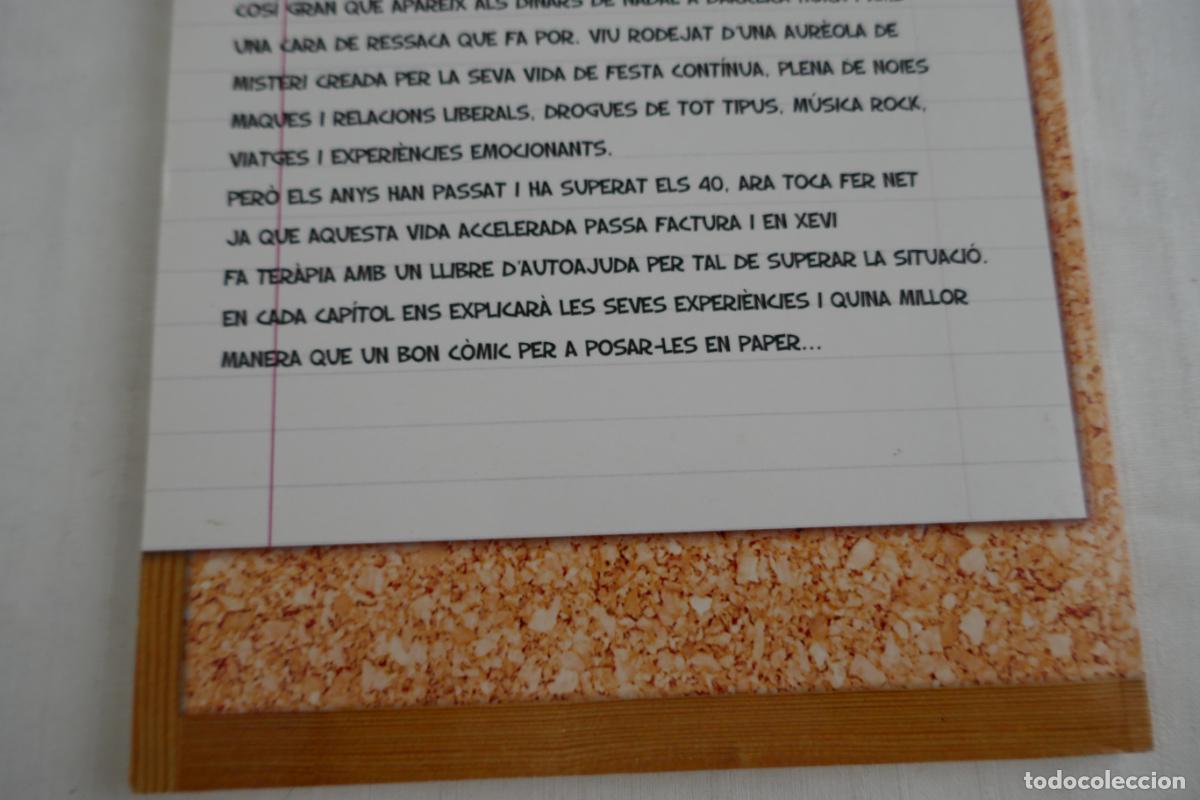 COSÍ GRAN QUE APAREIX ALS DINARS DE NADAL A
UNA CARA DE RESSACA QUE FA POR. VIU RODEJAT D'UNA AURÈOLA DE
MISTERI CREADA PER LA SEVA VIDA DE FESTA CONTÍNUA, PLENA DE NOIES
MAQUES I RELACIONS LIBERALS, DROGUES DE TOT TIPUS, MÚSICA ROCK,
VIATGES I EXPERIÈNCIES EMOCIONANTS.
PERÒ ELS ANYS HAN PASSAT I HA SUPERAT ELS 40, ARA TOCA FER NET
JA QUE AQUESTA VIDA ACCELERADA PASSA FACTURA I EN XEVI
FA TERÀPIA AMB UN LLIBRE D'AUTOAJUDA PER TAL DE SUPERAR LA SITUACIÓ.
EN CADA CAPÍTOL ENS EXPLICARÀ LES SEVES EXPERIÈNCIES I QUINA MILLOR
MANERA QUE UN BON CÒMIC PER A POSAR-LES EN PAPER...
todocoleccion